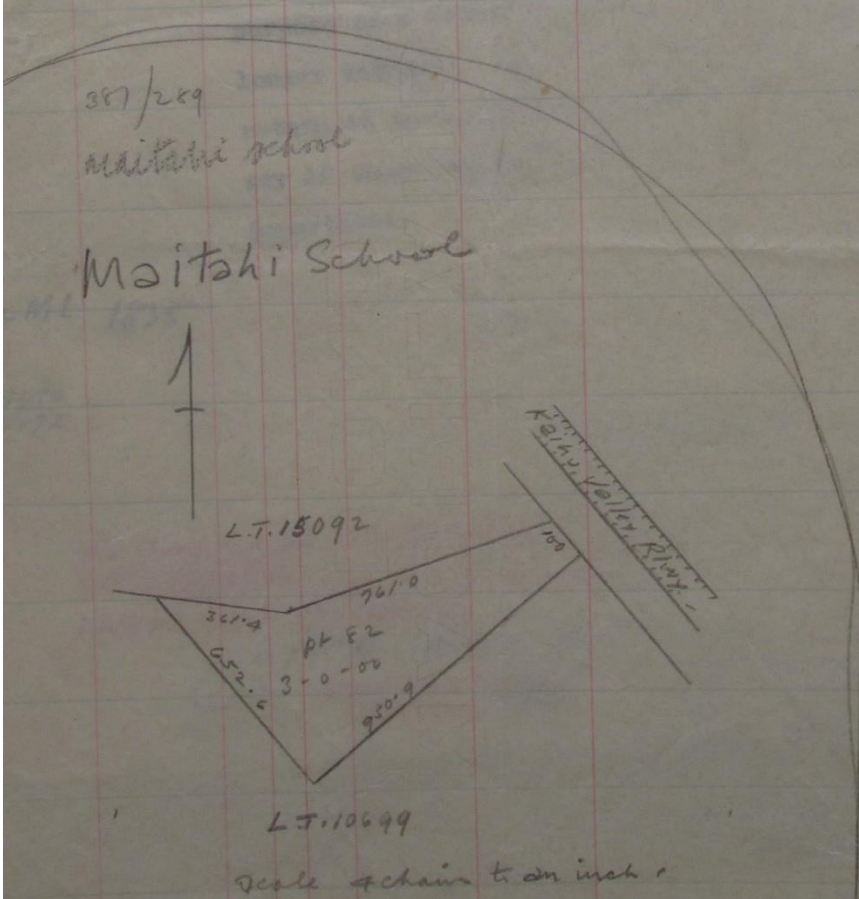 387/289
maitahi school
Maitahi School
ML 1835
Kaihu Valley Rlwy.
L.T. 15092
100
761.0
361.4
pt 82
652.6
3-0-00
950.9
L.T. 10699
scale 4 chains to an inch.